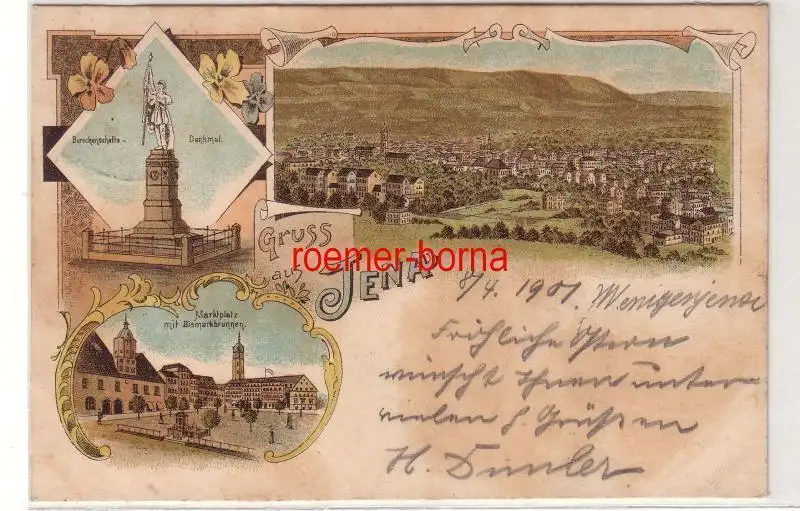 Burschenschafts-
Denkmal.
Gruss
aus
JENA.
roemer-borna
Marktplatz
mit Bismarkbrunnen.
8/4. 1901. Wenigenjena
Fröhliche Ostern
wünscht Ihnen unter
vielen h. Grüßen
H.